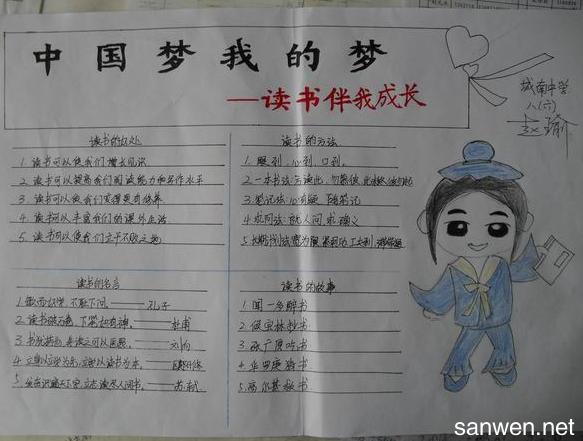 中国梦我的梦
——读书伴我成长
城南中学
八(六)
赵瑜
读书的好处
1. 读书可以使我们增长见识
2. 读书可以提高我们阅读能力和写作水平
3. 读书可以使我们变得更有修养
4. 读书可以丰富我们的课外生活
5. 读书可以使我们立于不败之地
读书的方法
1. 眼到,心到,口到。
2. 一本书法:
3. 笔记法:
4. 求问法:就人问,求确义
5.
读书的名言
1. 敏而好学,不耻下问。——孔子
2. 读书破万卷,下笔如有神。——杜甫
3. 书犹药也,善读之可以医愚。——刘向
4. 立身以立学为先,立学以读书为本。——欧阳修
5. 发奋识遍天下字,立志读尽人间书。——苏轼
读书的故事
1. 闻一多醉书
2. 侯宝林抄书
3. 张广厚吃书
4. 华罗庚猜书
5. 高尔基救书
sanwen.net